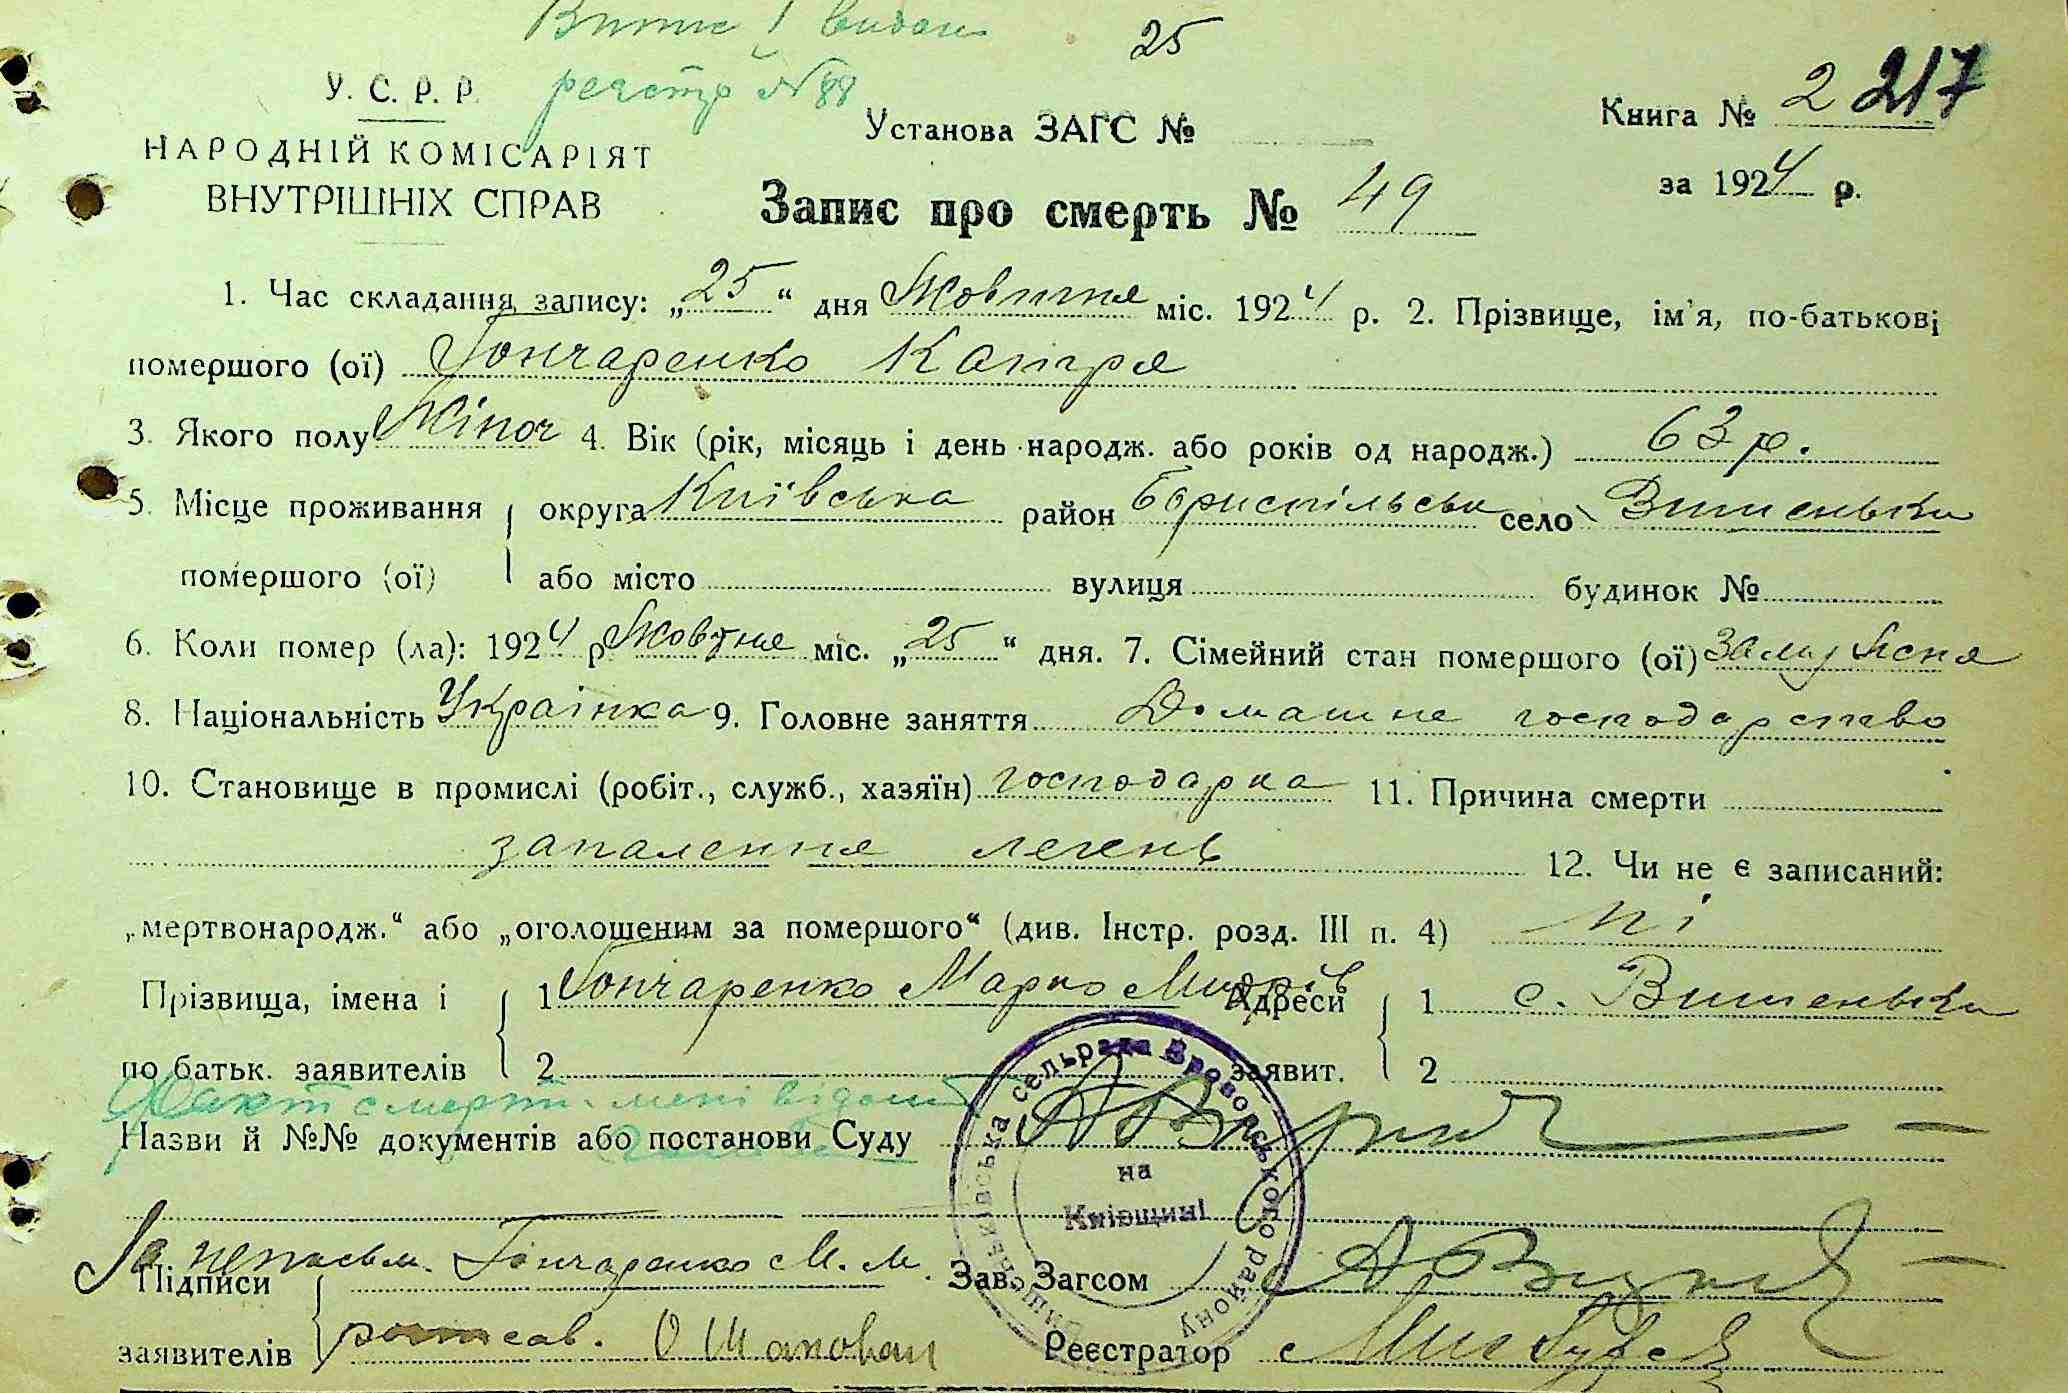 Випис видано
25
реєстр № 88
У. С. Р. Р.
НАРОДНІЙ КОМІСАРІЯТ
ВНУТРІШНІХ СПРАВ
Установа ЗАГС №
Книга № 2 217
за 1924 р.
Запис про смерть № 49
1. Час складання запису: „25“ дня Жовтня міс. 1924 р. 2. Прізвище, ім'я, по-батькові
помершого (ої) Гончаренко Катря
3. Якого полу Жіноч 4. Вік (рік, місяць і день народж. або років од народж.) 63 р.
5. Місце проживання округа Київська район Бориспільськ село Вишеньки
помершого (ої) або місто вулиця будинок №
6. Коли помер (ла): 1924 р Жовтня міс. „25“ дня. 7. Сімейний стан помершого (ої)
8. Національність Українка 9. Головне заняття Домашнє господарство
10. Становище в промислі (робіт., служб., хазяїн) господарка 11. Причина смерти
запалення легень 12. Чи не є записаний:
„мертвонародж.“ або „оголошеним за помершого“ (див. Інстр. розд. III п. 4) ні
Прізвища, імена і 1 Гончаренко Марко Адреси 1 с. Вишеньки
по батьк. заявителів 2 заявит. 2
Факт смерти мені відом
Назви й №№ документів або постанови Суду
сельрада Броворського району
на
Київщині
За неписьм. Гончаренко М. М. Зав. Загсом
Підписи
заявителів О Шаповал Реєстратор